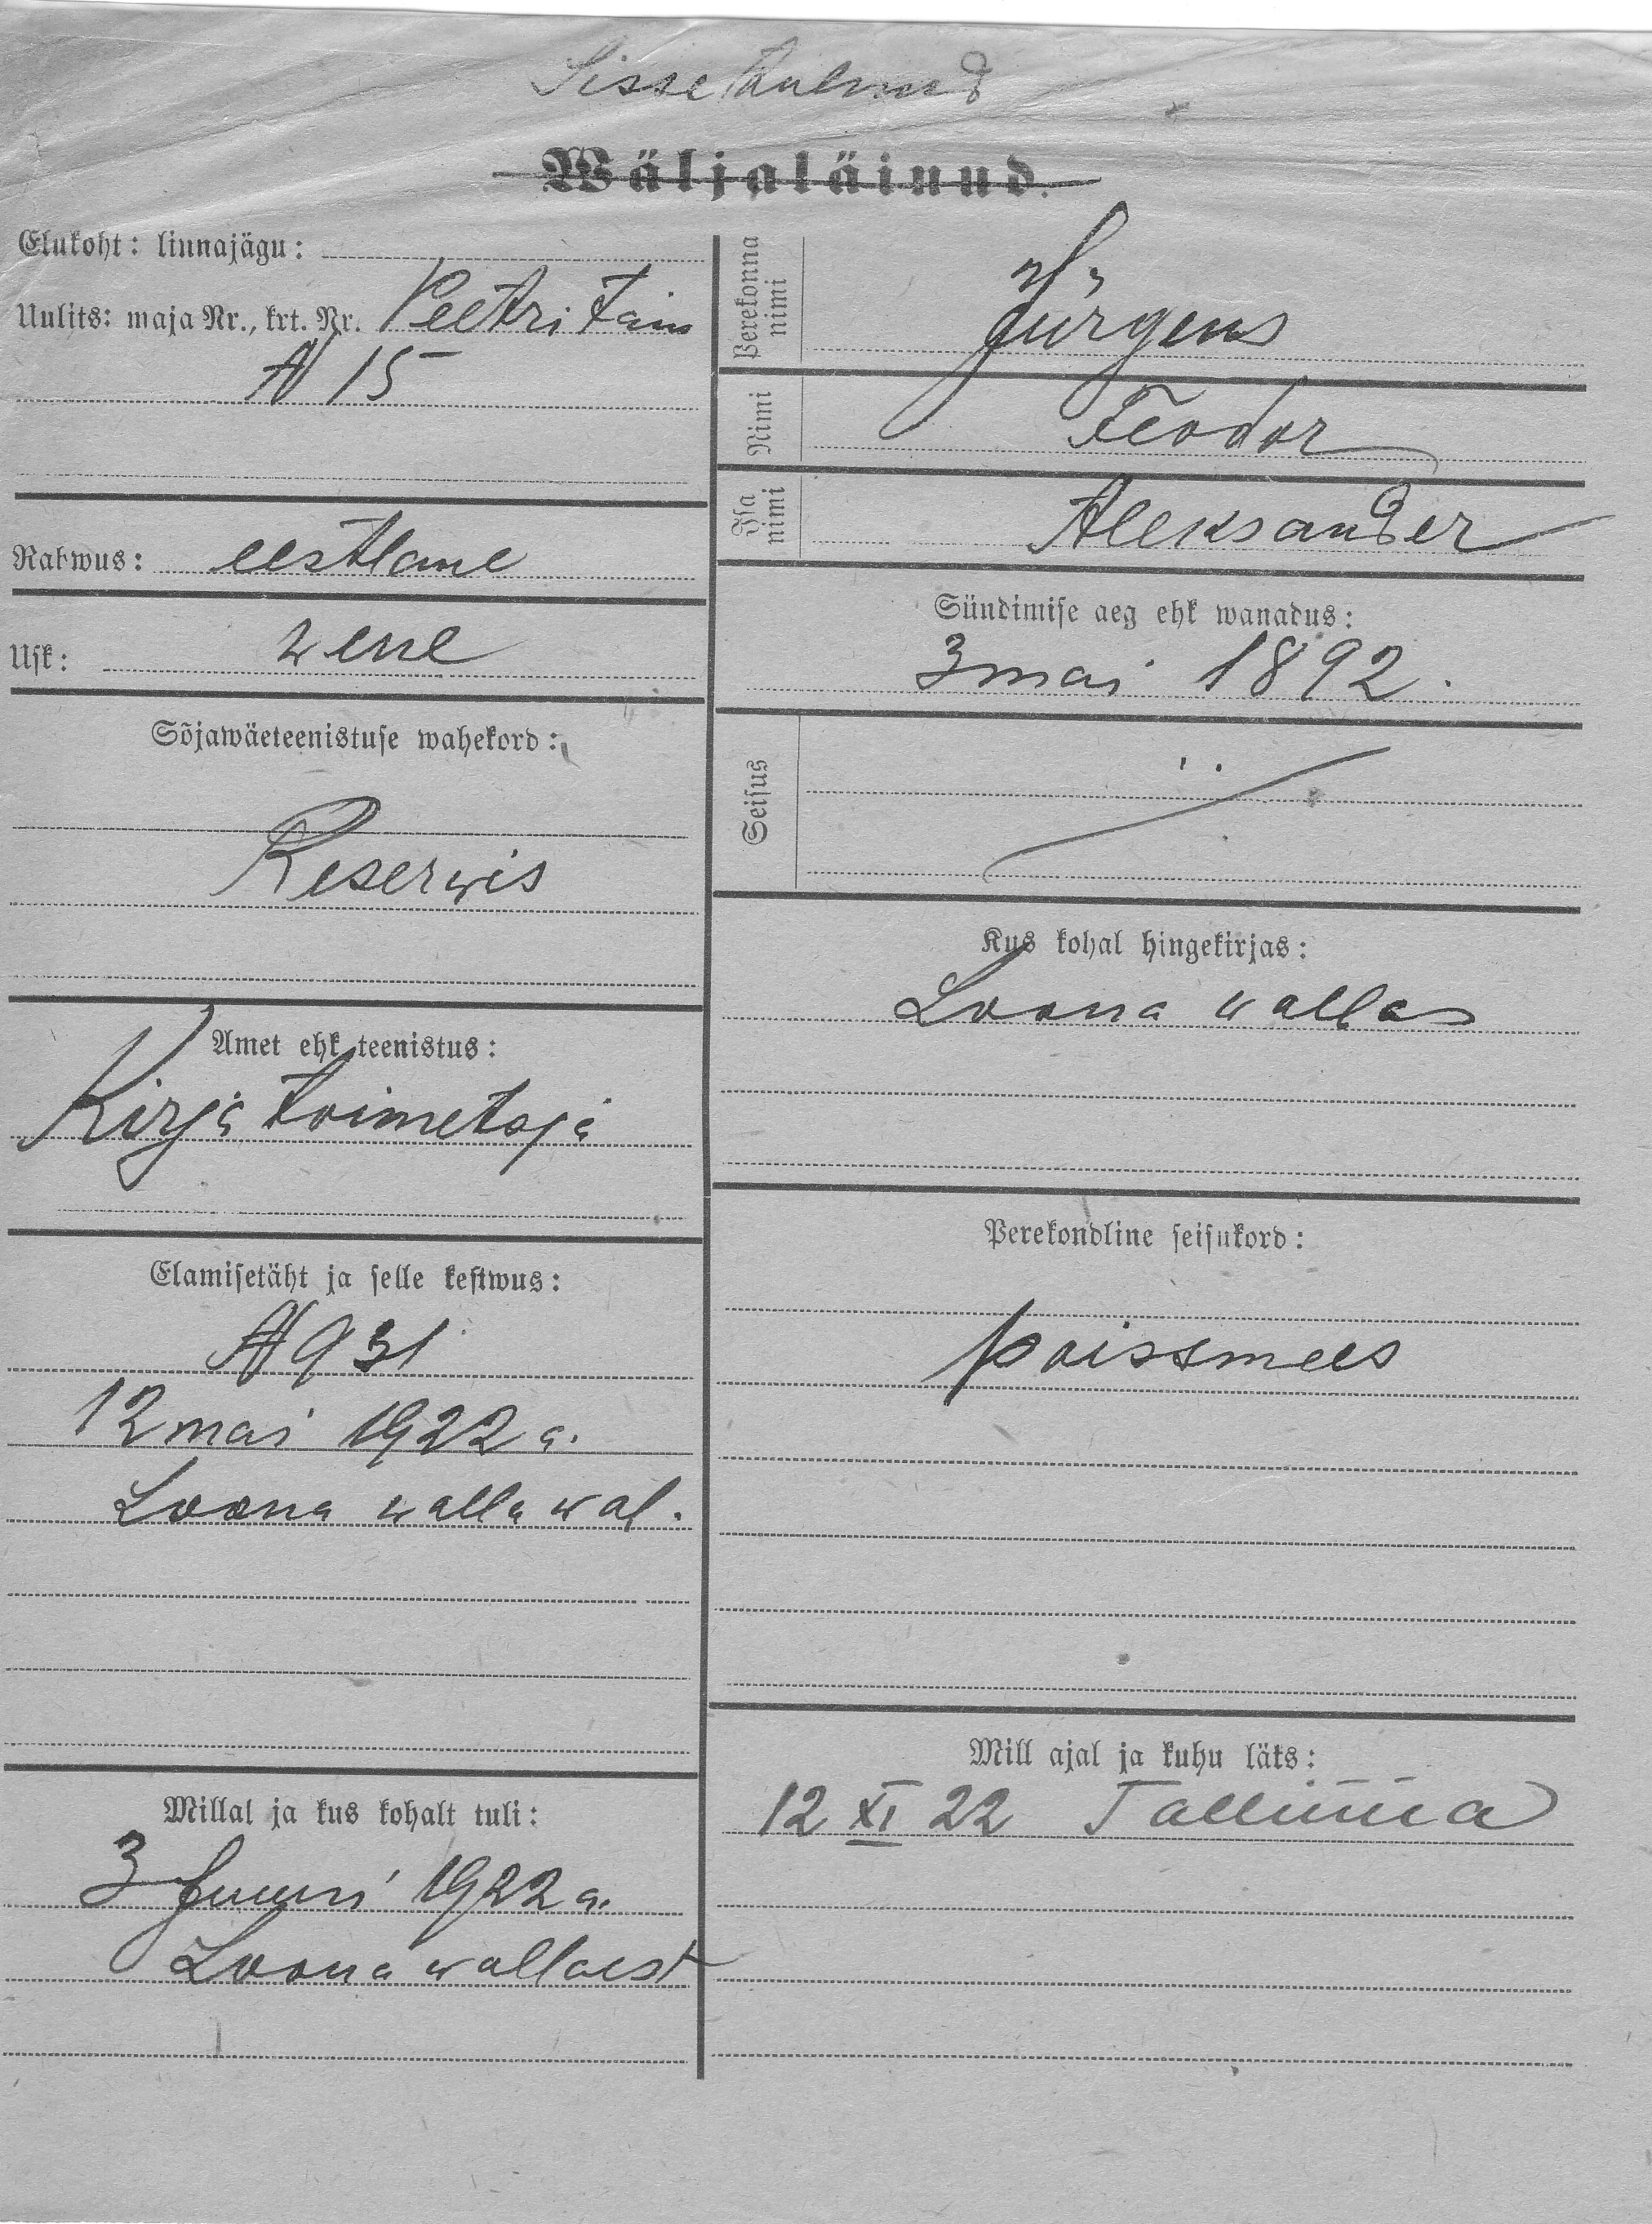 Sisse tulnud
Wäljaläinud.
Elukoht: linnajägu:
Uulits: maja Nr., krt. Nr. Peetri tän
№ 15
Rahwus: eestlane
Usk: wene
Sõjawäeteenistuse wahekord:
Reserwis
Amet ehk teenistus:
Kirja toimetaja
Elamisetäht ja selle kestwus:
№ 931
12 mai 1922 a.
Loona walla wal.
Millal ja kus kohalt tuli:
3 Juuni 1922 a.
Loona wallast
Perekonna nimi
Jürgens
Nimi
Feodor
Isa nimi
Aleksander
Sündimise aeg ehk wanadus:
3 mai 1892.
Seisus
Kus kohal hingekirjas:
Loona wallas
Perekondline seisukord:
poissmees
Mill ajal ja kuhu läks:
12 XI 22 Tallinna